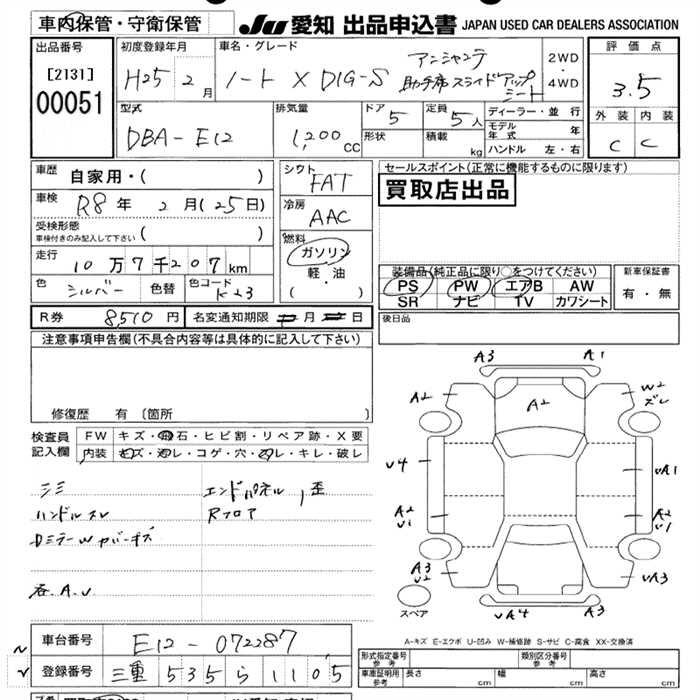 車内保管・守衛保管 JU 愛知 出品申込書 JAPAN USED CAR DEALERS ASSOCIATION
出品番号 [2131] 00051
初度登録年月 H25 2月
車名・グレード ノート X DIG-S アンシャンテ 助手席スライドアップシート
2WD・4WD
評価点 3.5
外装 C 内装 C
型式 DBA-E12
排気量 1,200 CC
ドア 5 形状
定員 5人 積載 kg
ディーラー・並行
モデル年式 年
ハンドル 左・右
車歴 自家用・( )
車検 R8年 2月(25日)
受検形態 車検付きのみ記入して下さい ( )
走行 10万7千207km
色 シルバー 色替 色コード K23
シフト FAT
冷房 AAC
燃料 ガソリン 軽・油 ( )
セールスポイント(正常に機能するものに限ります)
買取店出品
装備品(純正品に限り○をつけてください)
PS PW エアB AW
SR ナビ TV カワシート
新車保証書 有・無
R券 8,510円 名変通知期限 月 日
後日品
注意事項申告欄(不具合内容等は具体的に記入して下さい)
修復歴 有 〔箇所
検査員記入欄
FW キズ・飛石・ヒビ割・リペア跡・X要
内装 キズ・汚レ・コゲ・穴・スレ・キレ・破レ
エンドパネル, 歪
ハンドルスレ Rフロア
A3 A1
A2 A2 W2 ズレ
U4 UA1
A2 U1 A2 U1
A3 U2 UA3
UA4 A3
スペア
A-キズ E-エクボ U-凹み W-補修跡 S-サビ C-腐食 XX-交換済
車台番号 E12-072287
登録番号 三重 535 ら 1105
形式指定番号 参考 類別区分番号 参考
車庫証明用 参考 長さ cm 幅 cm 高さ cm